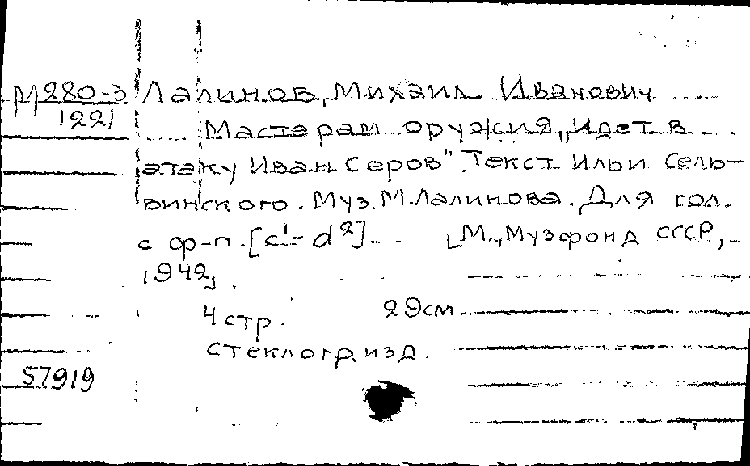 М280-3 Лалинов, Михаил Иванович
1221
Мастерам оружия „Идет в
атаку Иван Серов". Текст Ильи Сель-
винского. Муз. М. Лалинова. Для гол.
с ф-п. [c¹-d²]. [М., Музфонд СССР,
1942]
4 стр. 29см
стеклогр. изд.
57919